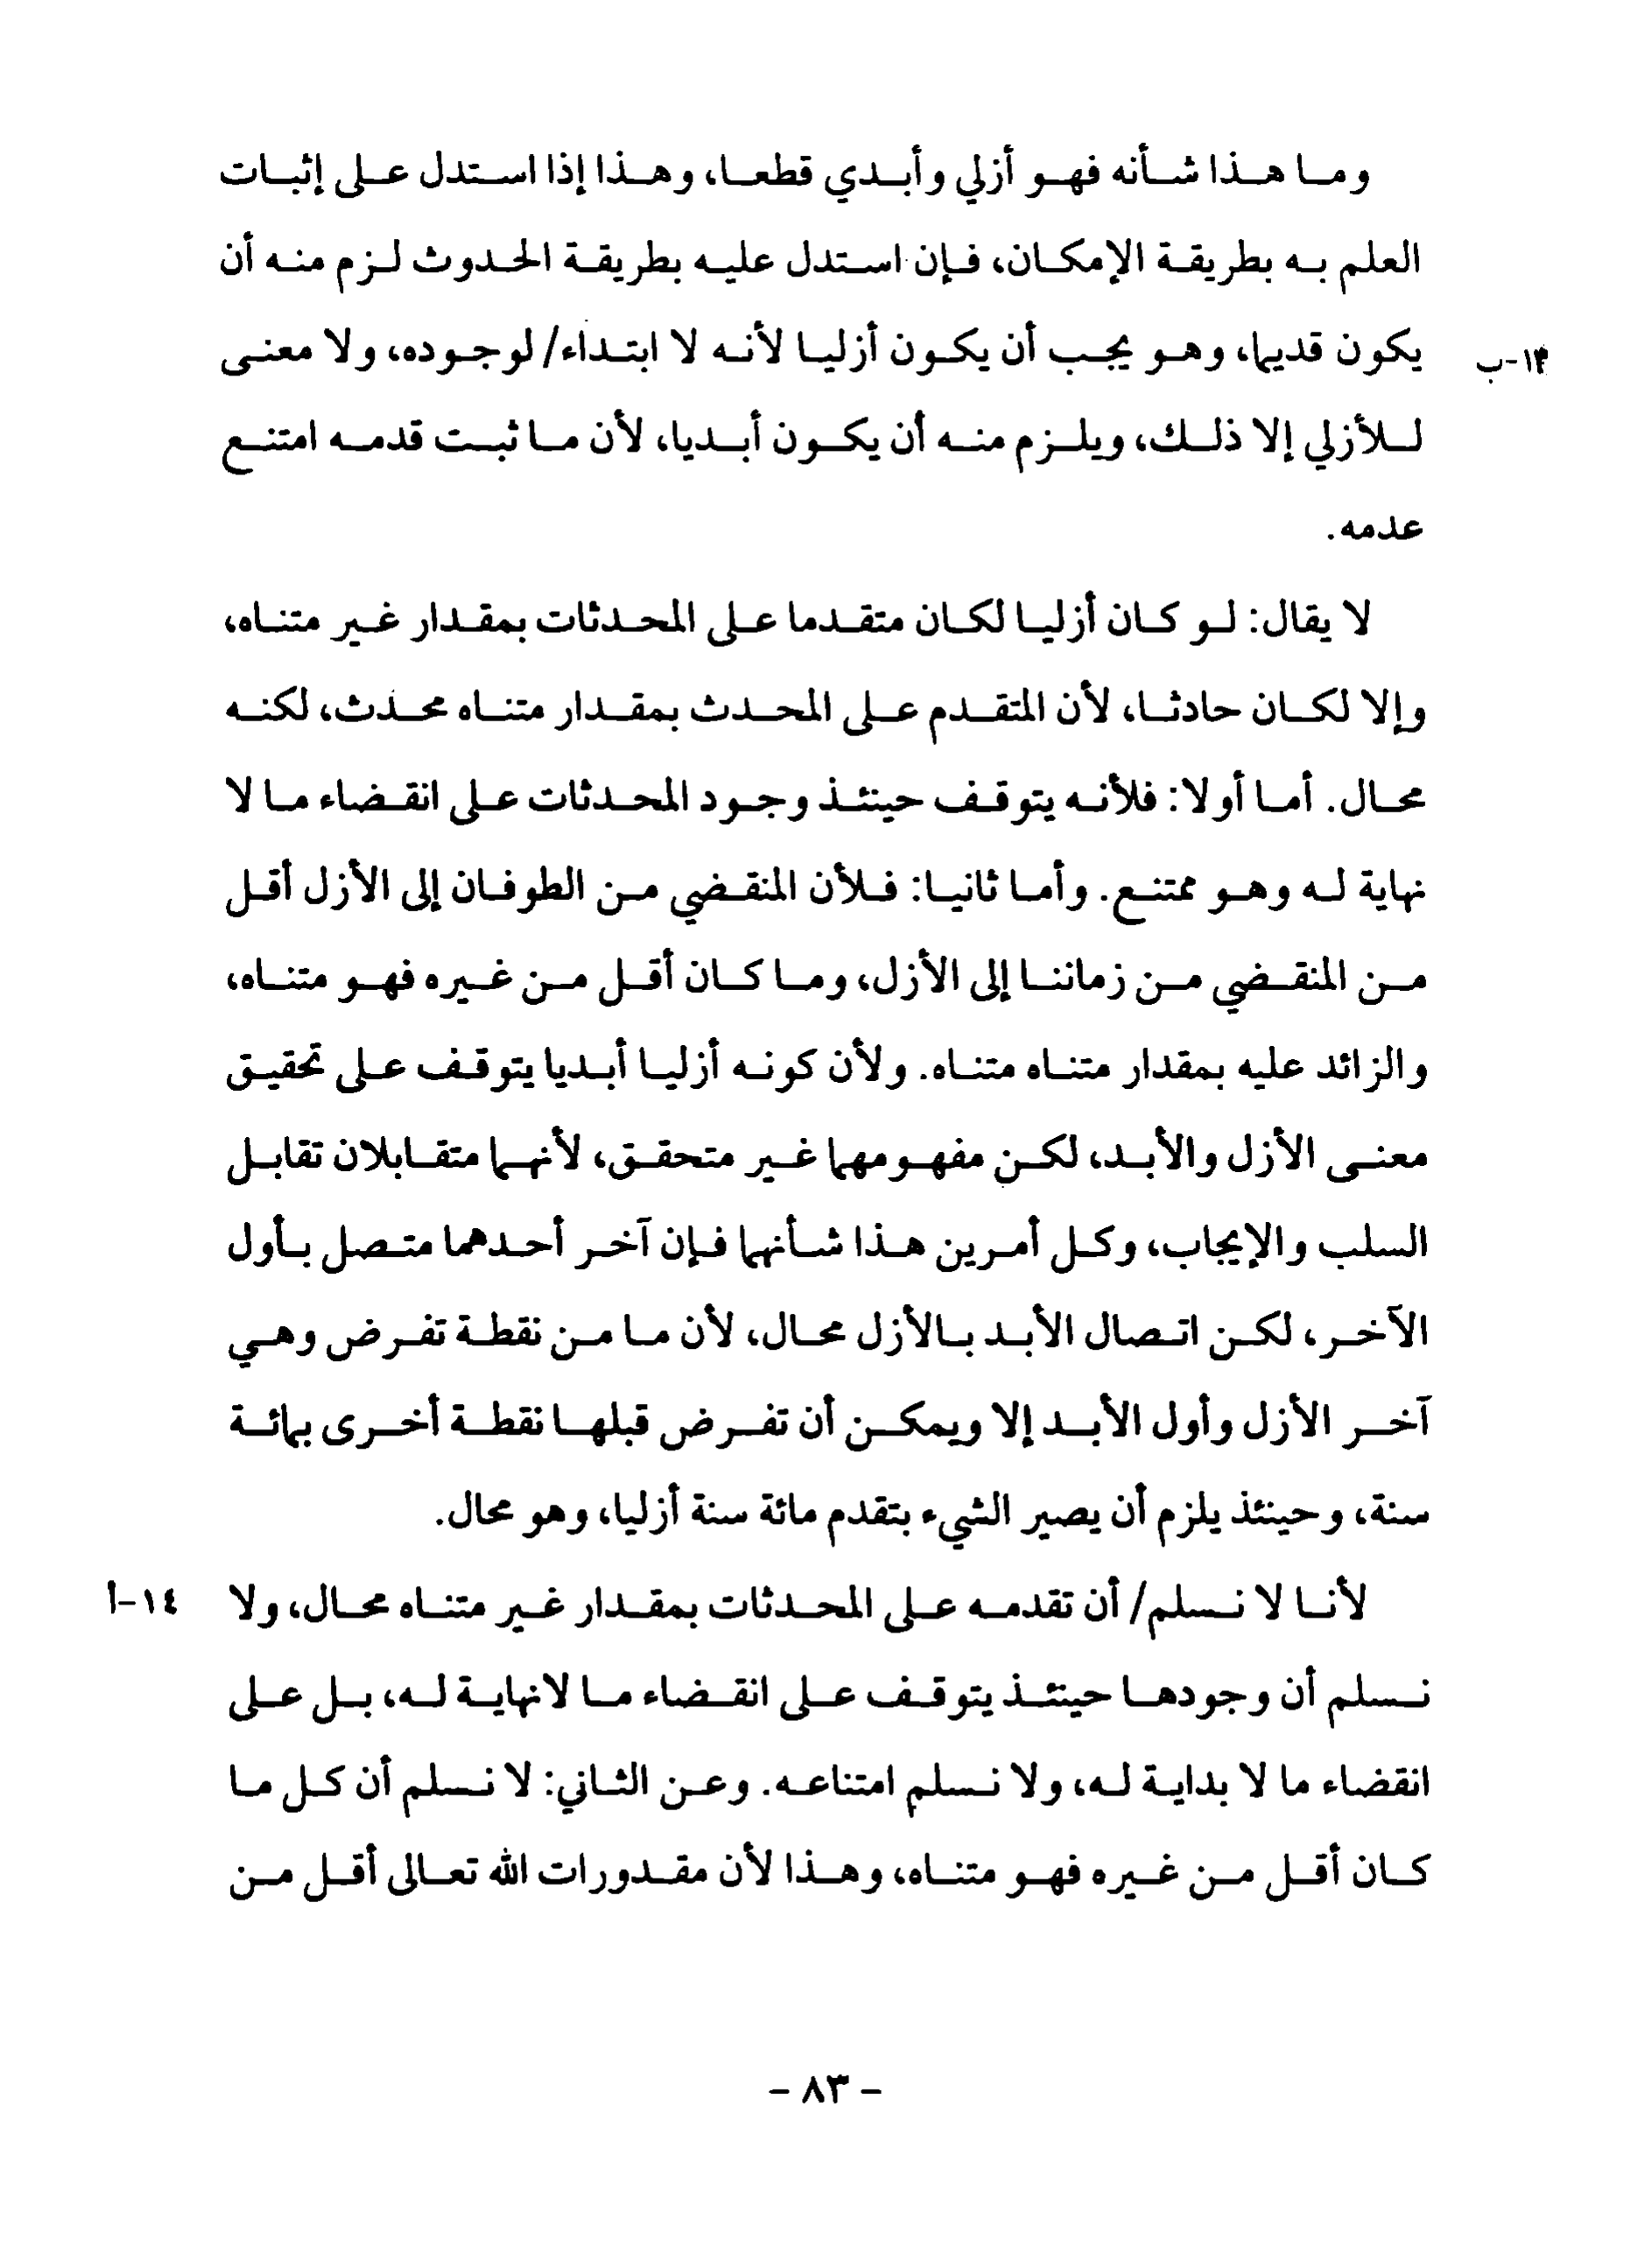 وما هذا شأنه فهو أزلي وأبدي قطعا، وهذا إذا استدل على إثبات
العلم به بطريقة الإمكان، فإن استدل عليه بطريقة الحدوث لزم منه أن
يكون قديما، وهو يجب أن يكون أزليا لأنه لا ابتداء/ لوجوده، ولا معنى
١٣-ب
للأزلي إلا ذلك، ويلزم منه أن يكون أبديا، لأن ما ثبت قدمه امتنع
عدمه.
لا يقال: لو كان أزليا لكان متقدما على المحدثات بمقدار غير متناه،
وإلا لكان حادثا، لأن المتقدم على المحدث بمقدار متناه محدث، لكنه
محال. أما أولا: فلأنه يتوقف حينئذ وجود المحدثات على انقضاء ما لا
نهاية له وهو ممتنع. وأما ثانيا: فلأن المنقضي من الطوفان إلى الأزل أقل
من المنقضي من زماننا إلى الأزل، وما كان أقل من غيره فهو متناه،
والزائد عليه بمقدار متناه متناه. ولأن كونه أزليا أبديا يتوقف على تحقيق
معنى الأزل والأبد، لكن مفهومهما غير متحقق، لأنهما متقابلان تقابل
السلب والإيجاب، وكل أمرين هذا شأنهما فإن آخر أحدهما متصل بأول
الآخر، لكن اتصال الأبد بالأزل محال، لأن ما من نقطة تفرض وهي
آخر الأزل وأول الأبد إلا ويمكن أن تفرض قبلها نقطة أخرى بمائة
سنة، وحينئذ يلزم أن يصير الشيء بتقدم مائة سنة أزليا، وهو محال.
لأنا لا نسلم/ أن تقدمه على المحدثات بمقدار غير متناه محال، ولا
١٤-أ
نسلم أن وجودها حينئذ يتوقف على انقضاء ما لانهاية له، بل على
انقضاء ما لا بداية له، ولا نسلم امتناعه. وعن الثاني: لا نسلم أن كل ما
كان أقل من غيره فهو متناه، وهذا لأن مقدورات الله تعالى أقل من
- ٨٣ -